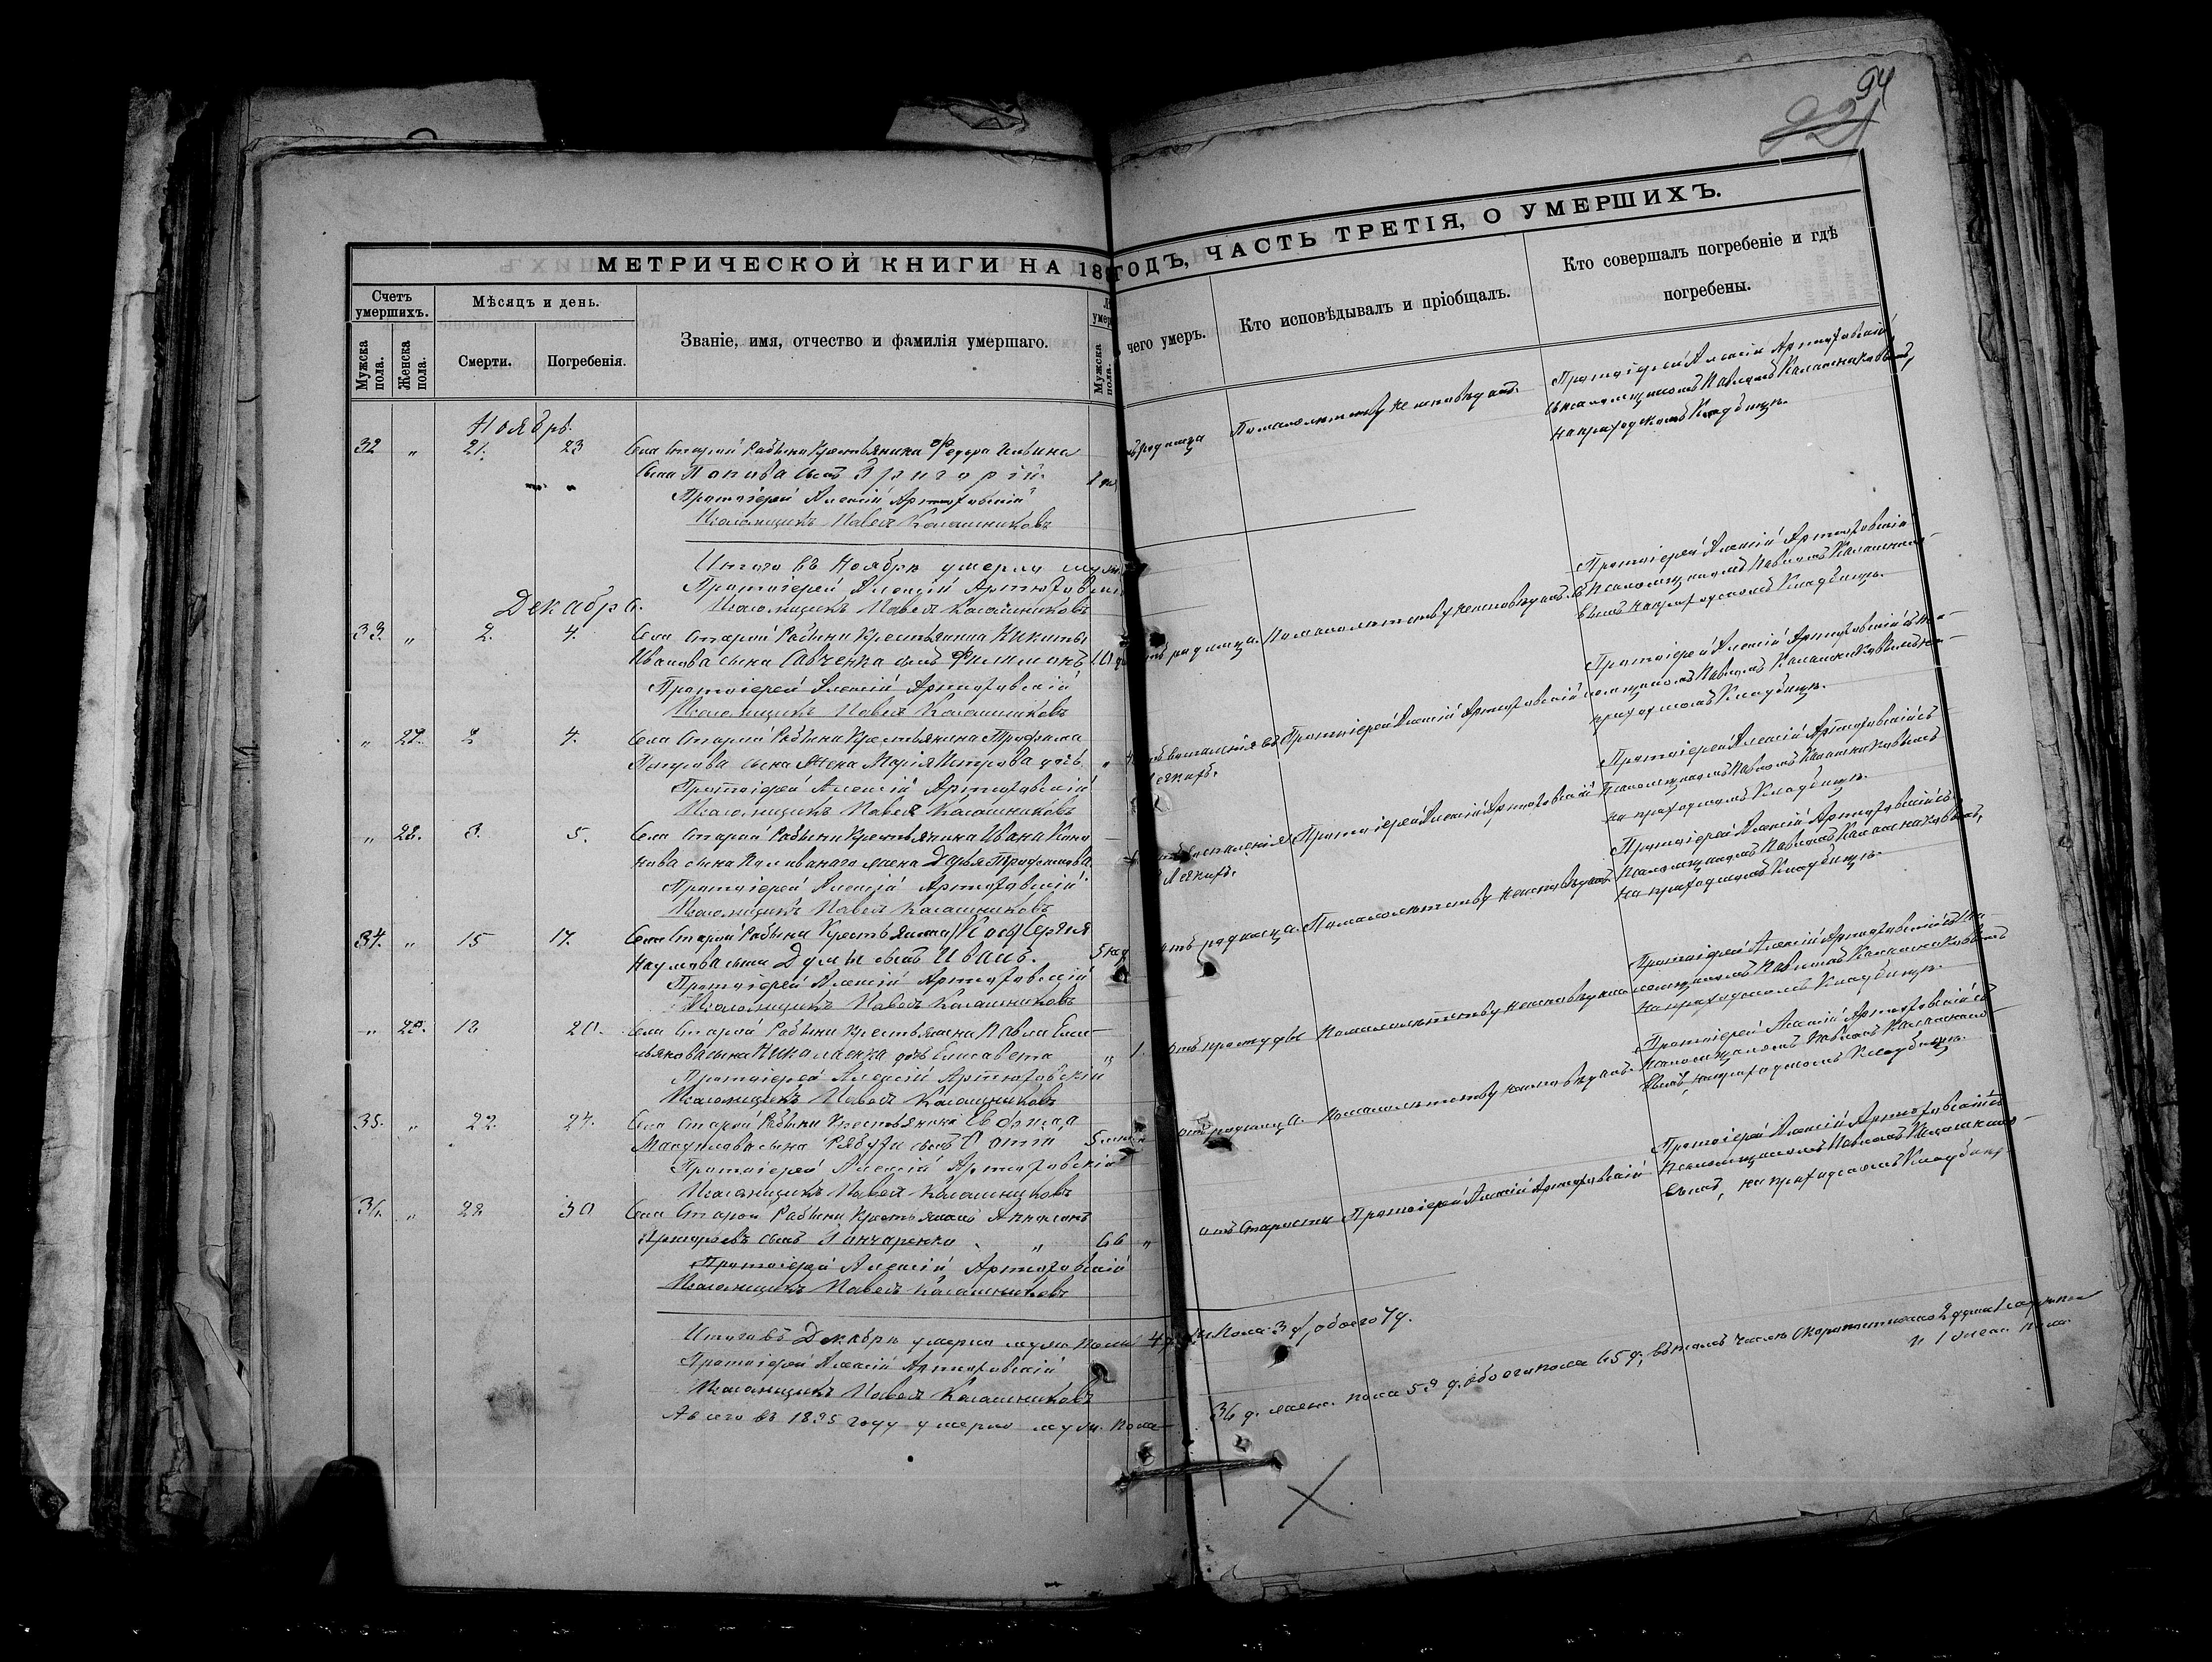 94
МЕТРИЧЕСКОЙ КНИГИ НА 18
ГОДЪ, ЧАСТЬ ТРЕТІЯ, О УМЕРШИХЪ.
Счетъ умершихъ.
Мужска пола.
Женска пола.
Мѣсяцъ и день.
Смерти.
Погребенія.
Званіе, имя, отчество и фамилія умершаго.
Мужска пола.
чего умеръ.
Кто исповѣдывалъ и пріобщалъ.
Кто совершалъ погребеніе и гдѣ погребены.
Ноябрь.
32 " 21. 23 Села Старой Рабыни Крестьянина Федора Ильина
сына Попова сынъ Григорій
Протоіерей Алексій Артюховскій
Псаломщикъ Павелъ Калашниковъ
родимца
По малолѣтству не исповѣданъ.
Протоіерей Алексій Артюховскій
съ псаломщикомъ Павломъ Калашниковымъ,
на приходскомъ кладбищѣ.
Итого въ Ноябрѣ умерло муж.
Протоіерей Алексій Артюховскій
Псаломщикъ Павелъ Калашниковъ
Декабрь.
33. " 2. 4. Села Старой Рабыни Крестьянина Никиты
Иванова сына Савченка сынъ Филимонъ
Протоіерей Алексій Артюховскій
Псаломщикъ Павелъ Калашниковъ
родимца. По малолѣтству не исповѣданъ.
Протоіерей Алексій Артюховскій
съ Псаломщикомъ Павломъ Калашнико-
вымъ на приходскомъ кладбищѣ.
" 27. 2 4. Села Старой Рабыни Крестьянина Трофима
Петрова сына жена Марія Петрова
Протоіерей Алексій Артюховскій
Псаломщикъ Павелъ Калашниковъ
воспаленія въ легкихъ.
Протоіерей Алексій Артюховскій
Протоіерей Алексій Артюховскій съ Пса-
ломщикомъ Павломъ Калашниковымъ на
приходскомъ кладбищѣ.
" 28. 3. 5. Села Старой Рабыни Крестьянина Ивана Коно-
нова сына жена Дарья Трофимова
Протоіерей Алексій Артюховскій
Псаломщикъ Павелъ Калашниковъ
воспаленія легкихъ.
Протоіерей Алексій Артюховскій
Протоіерей Алексій Артюховскій съ
Псаломщикомъ Павломъ Калашниковымъ
на приходскомъ кладбищѣ.
34. " 15 17. Села Старой Рабыни Крестьянина Сергія
Наумова сына Думы сынъ Иванъ.
Протоіерей Алексій Артюховскій
Псаломщикъ Павелъ Калашниковъ
отъ родимца. По малолѣтству не исповѣданъ
Протоіерей Алексій Артюховскій съ
Псаломщикомъ Павломъ Калашниковымъ,
на приходскомъ кладбищѣ.
" 29. 18 20. Села Старой Рабыни Крестьянина Павла Еме-
льянова сына Николаенка дочь Елисавета " 1.
Протоіерей Алексій Артюховскій
Псаломщикъ Павелъ Калашниковъ
отъ простуды По малолѣтству не исповѣдана
Протоіерей Алексій Артюховскій съ Пса-
ломщикомъ Павломъ Калашниковымъ
на приходскомъ кладбищѣ.
35. " 22. 24. Села Старой Рабыни Крестьянина
сына Рябухи сынъ 5
Протоіерей Алексій Артюховскій
Псаломщикъ Павелъ Калашниковъ
отъ родимца. По малолѣтству не исповѣданъ.
Протоіерей Алексій Артюховскій съ
Псаломщикомъ Павломъ Калашнико-
вымъ, на приходскомъ кладбищѣ.
36. " 28 30 Села Старой Рабыни Крестьянинъ
сынъ Гончаренко " 66 "
Протоіерей Алексій Артюховскій
Псаломщикъ Павелъ Калашниковъ
отъ Старости Протоіерей Алексій Артюховскій
Протоіерей Алексій Артюховскій съ
Псаломщикомъ Павломъ Калашнико-
вымъ, на приходскомъ кладбищѣ
Итого въ Декабрѣ умерло муж. пола 4 пола 3 д, обоего 7 д.
Протоіерей Алексій Артюховскій
Псаломщикъ Павелъ Калашниковъ
А всего въ 1895 году умерло муж. пола
36 д. женс. пола 29 д. обоего пола 65 д; въ томъ числѣ скоропостижно 2 души 1 мужска
и 1 женс. пола.